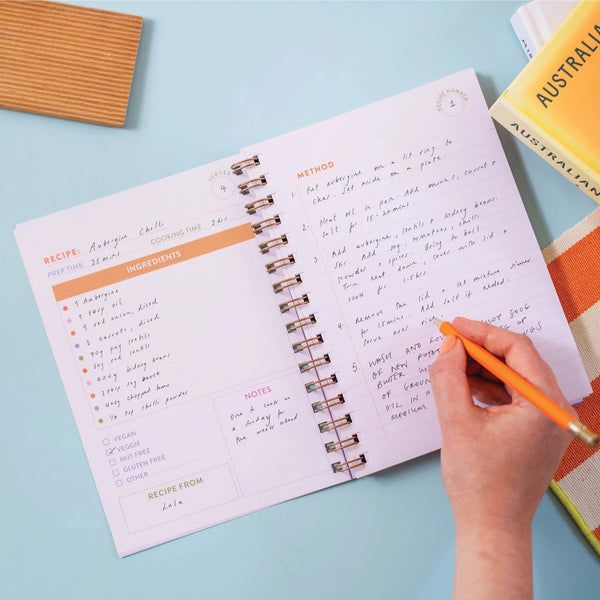 SERVES
4
RECIPE: Aubergine Chilli
PREP TIME 25 mins COOKING TIME 2 hrs
INGREDIENTS
1 Aubergine
1 tbsp oil
1 red onion, diced
2 carrots, diced
puy lentils
red lentils
400g kidney beans
soy sauce
400g chopped toms
chilli powder
VEGAN
VEGGIE
NUT FREE
GLUTEN FREE
OTHER
RECIPE FROM
Lala
NOTES
One to cook on
a Sunday for
the week ahead
RECIPE NUMBER
1
METHOD
1. Put aubergine on a lit ring to
char. Set aside on a plate.
2. Heat oil in pan. Add onions, carrot +
salt for 15-20mins.
3. Add aubergine, lentils + kidney beans.
Stir. Add soy, tomatoes, chilli
powder + spices. Bring to boil.
Turn heat down, cover with lid +
cook for 1.5hrs
4. Remove the lid + let mixture simmer
for 15mins. Add salt if needed.
Serve over
5. WASH AND 500G
OF NEW
OF
OIL IN A
MEDIUM
AUSTRALIA
AUSTRALIAN